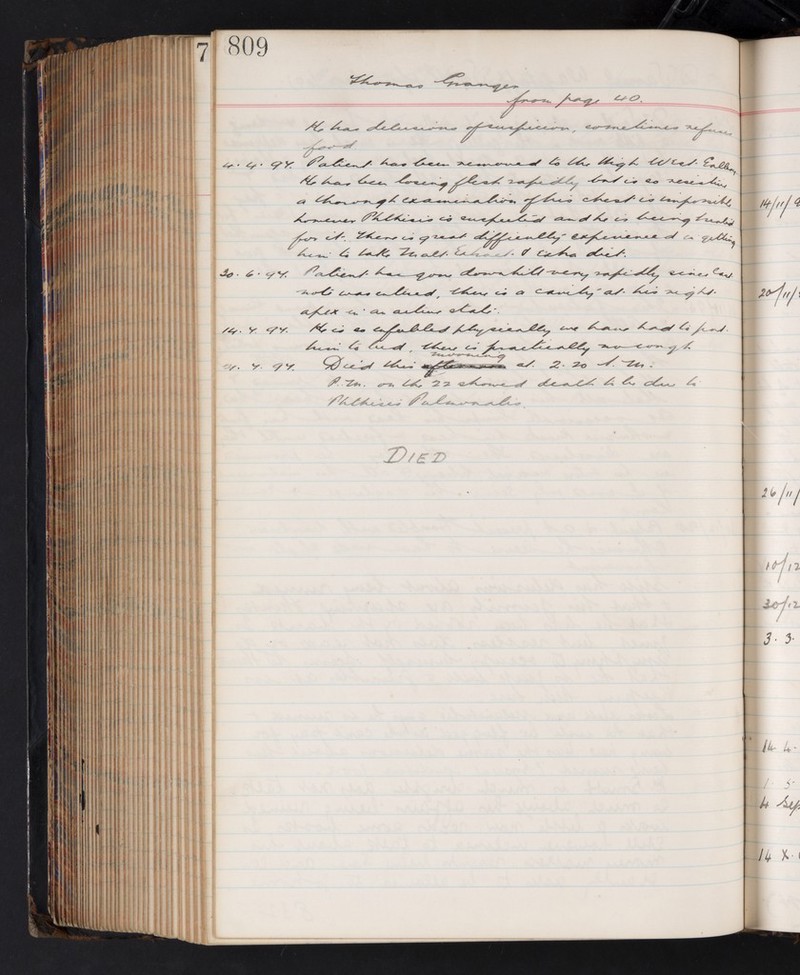 7 809
Thomas Granger
from page 40.
He has delusions of suspicion, sometimes refuses
food
4. 4. 94. Patient has been removed to the High West Gallery
He has been losing flesh rapidly but is so resistive
a thorough examination of his chest is impossible
however Phthisis is suspected and he is being treated
for it. There is great difficulty experienced in getting
him to take Malt Extract & extra diet.
20. 6. 94. Patient has gone downhill very rapidly since last
note was entered, there is a cavity at his right
apex in an active state.
14. 7. 94. He is so enfeebled physically we have had to put
him to bed, there is practically no cough
7. 94. Died this morning at 2.20 A.M.
P.M. on the 22 showed death to be due to
Phthisis Pulmonalis.
DIED
14/11/9
20/11/
26/11/
10/12
30/12
3. 3.
14 4.
1 5
4 Sep
14 X.